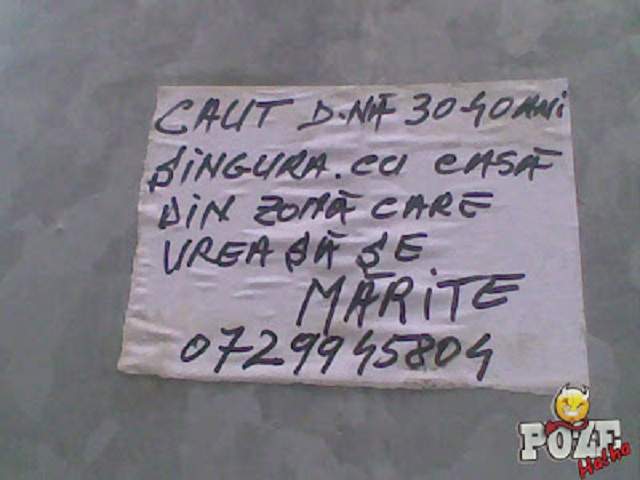 CAUT D.NĂ 30-40 ANi
ȘiNGURA. CU CASĂ
DiN ZONĂ CARE
VREA ȘĂ ȘE
MĂRiTE
0729945804
POZE
Haiha